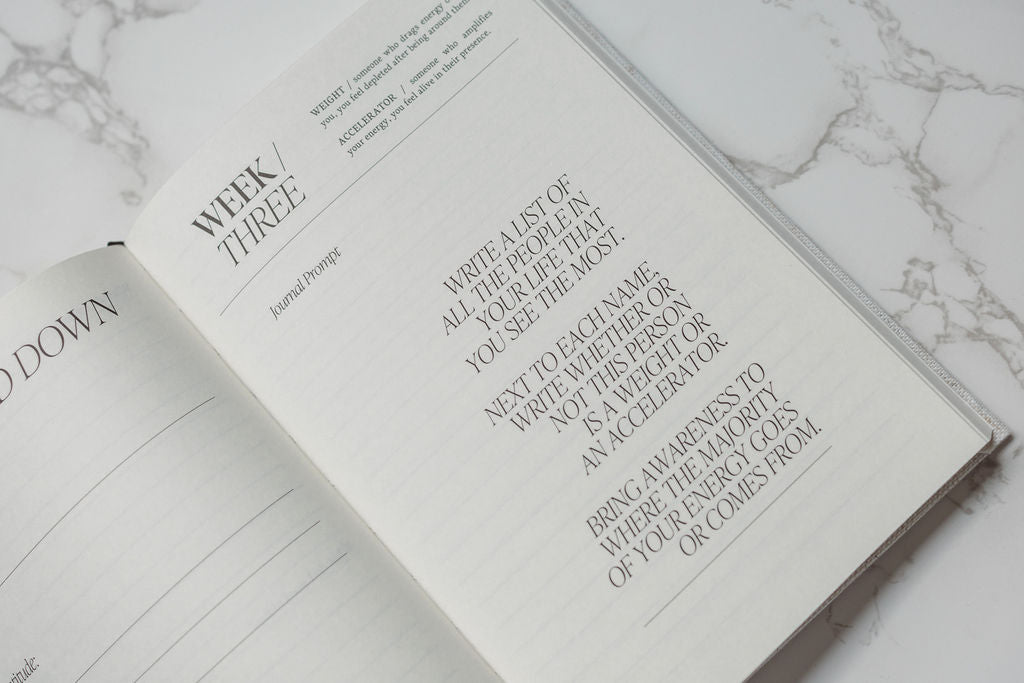 DOWN
WEIGHT / someone who drags energy
you, you feel depleted after being around them.
ACCELERATOR / someone who amplifies
your energy, you feel alive in their presence.
WEEK /
THREE
Journal Prompt
WRITE A LIST OF
ALL THE PEOPLE IN
YOUR LIFE THAT
YOU SEE THE MOST.
NEXT TO EACH NAME,
WRITE WHETHER OR
NOT THIS PERSON
IS A WEIGHT OR
AN ACCELERATOR.
BRING AWARENESS TO
WHERE THE MAJORITY
OF YOUR ENERGY GOES
OR COMES FROM.